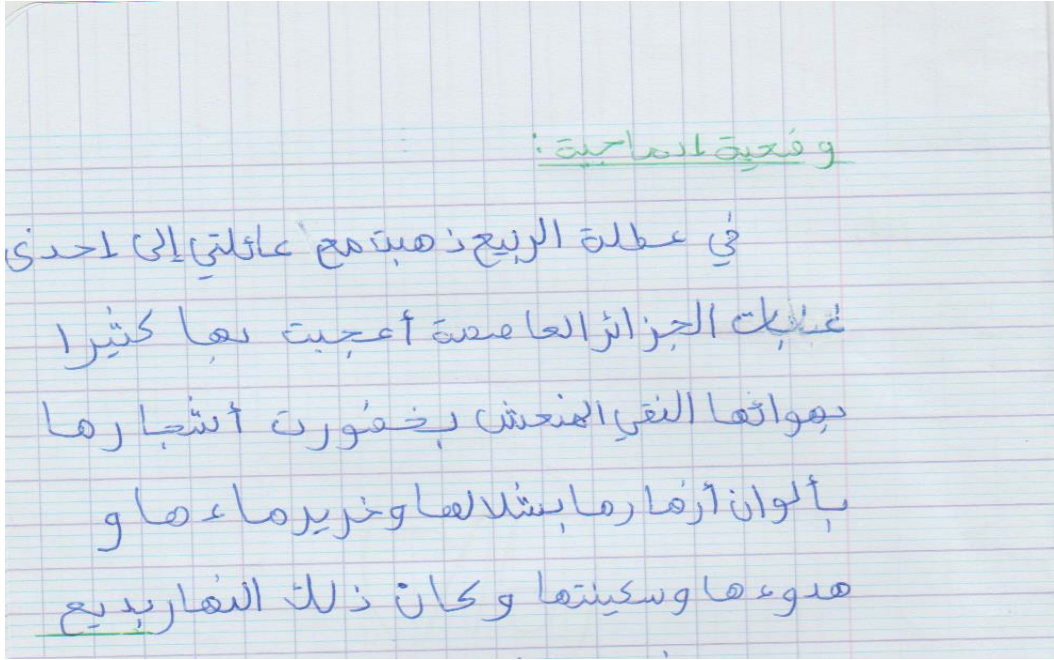 وضعية ادماجية:
في عطلة الربيع ذهبت مع عائلتي إلى احدى
غابات الجزائر العاصمة أعجبت بها كثيرا
بهوائها النقي المنعش بخضورت أشجارها
بألوان أزهارها بشلالها وخرير ماءها و
هدوءها وسكينتها وكان ذلك النهار بديع